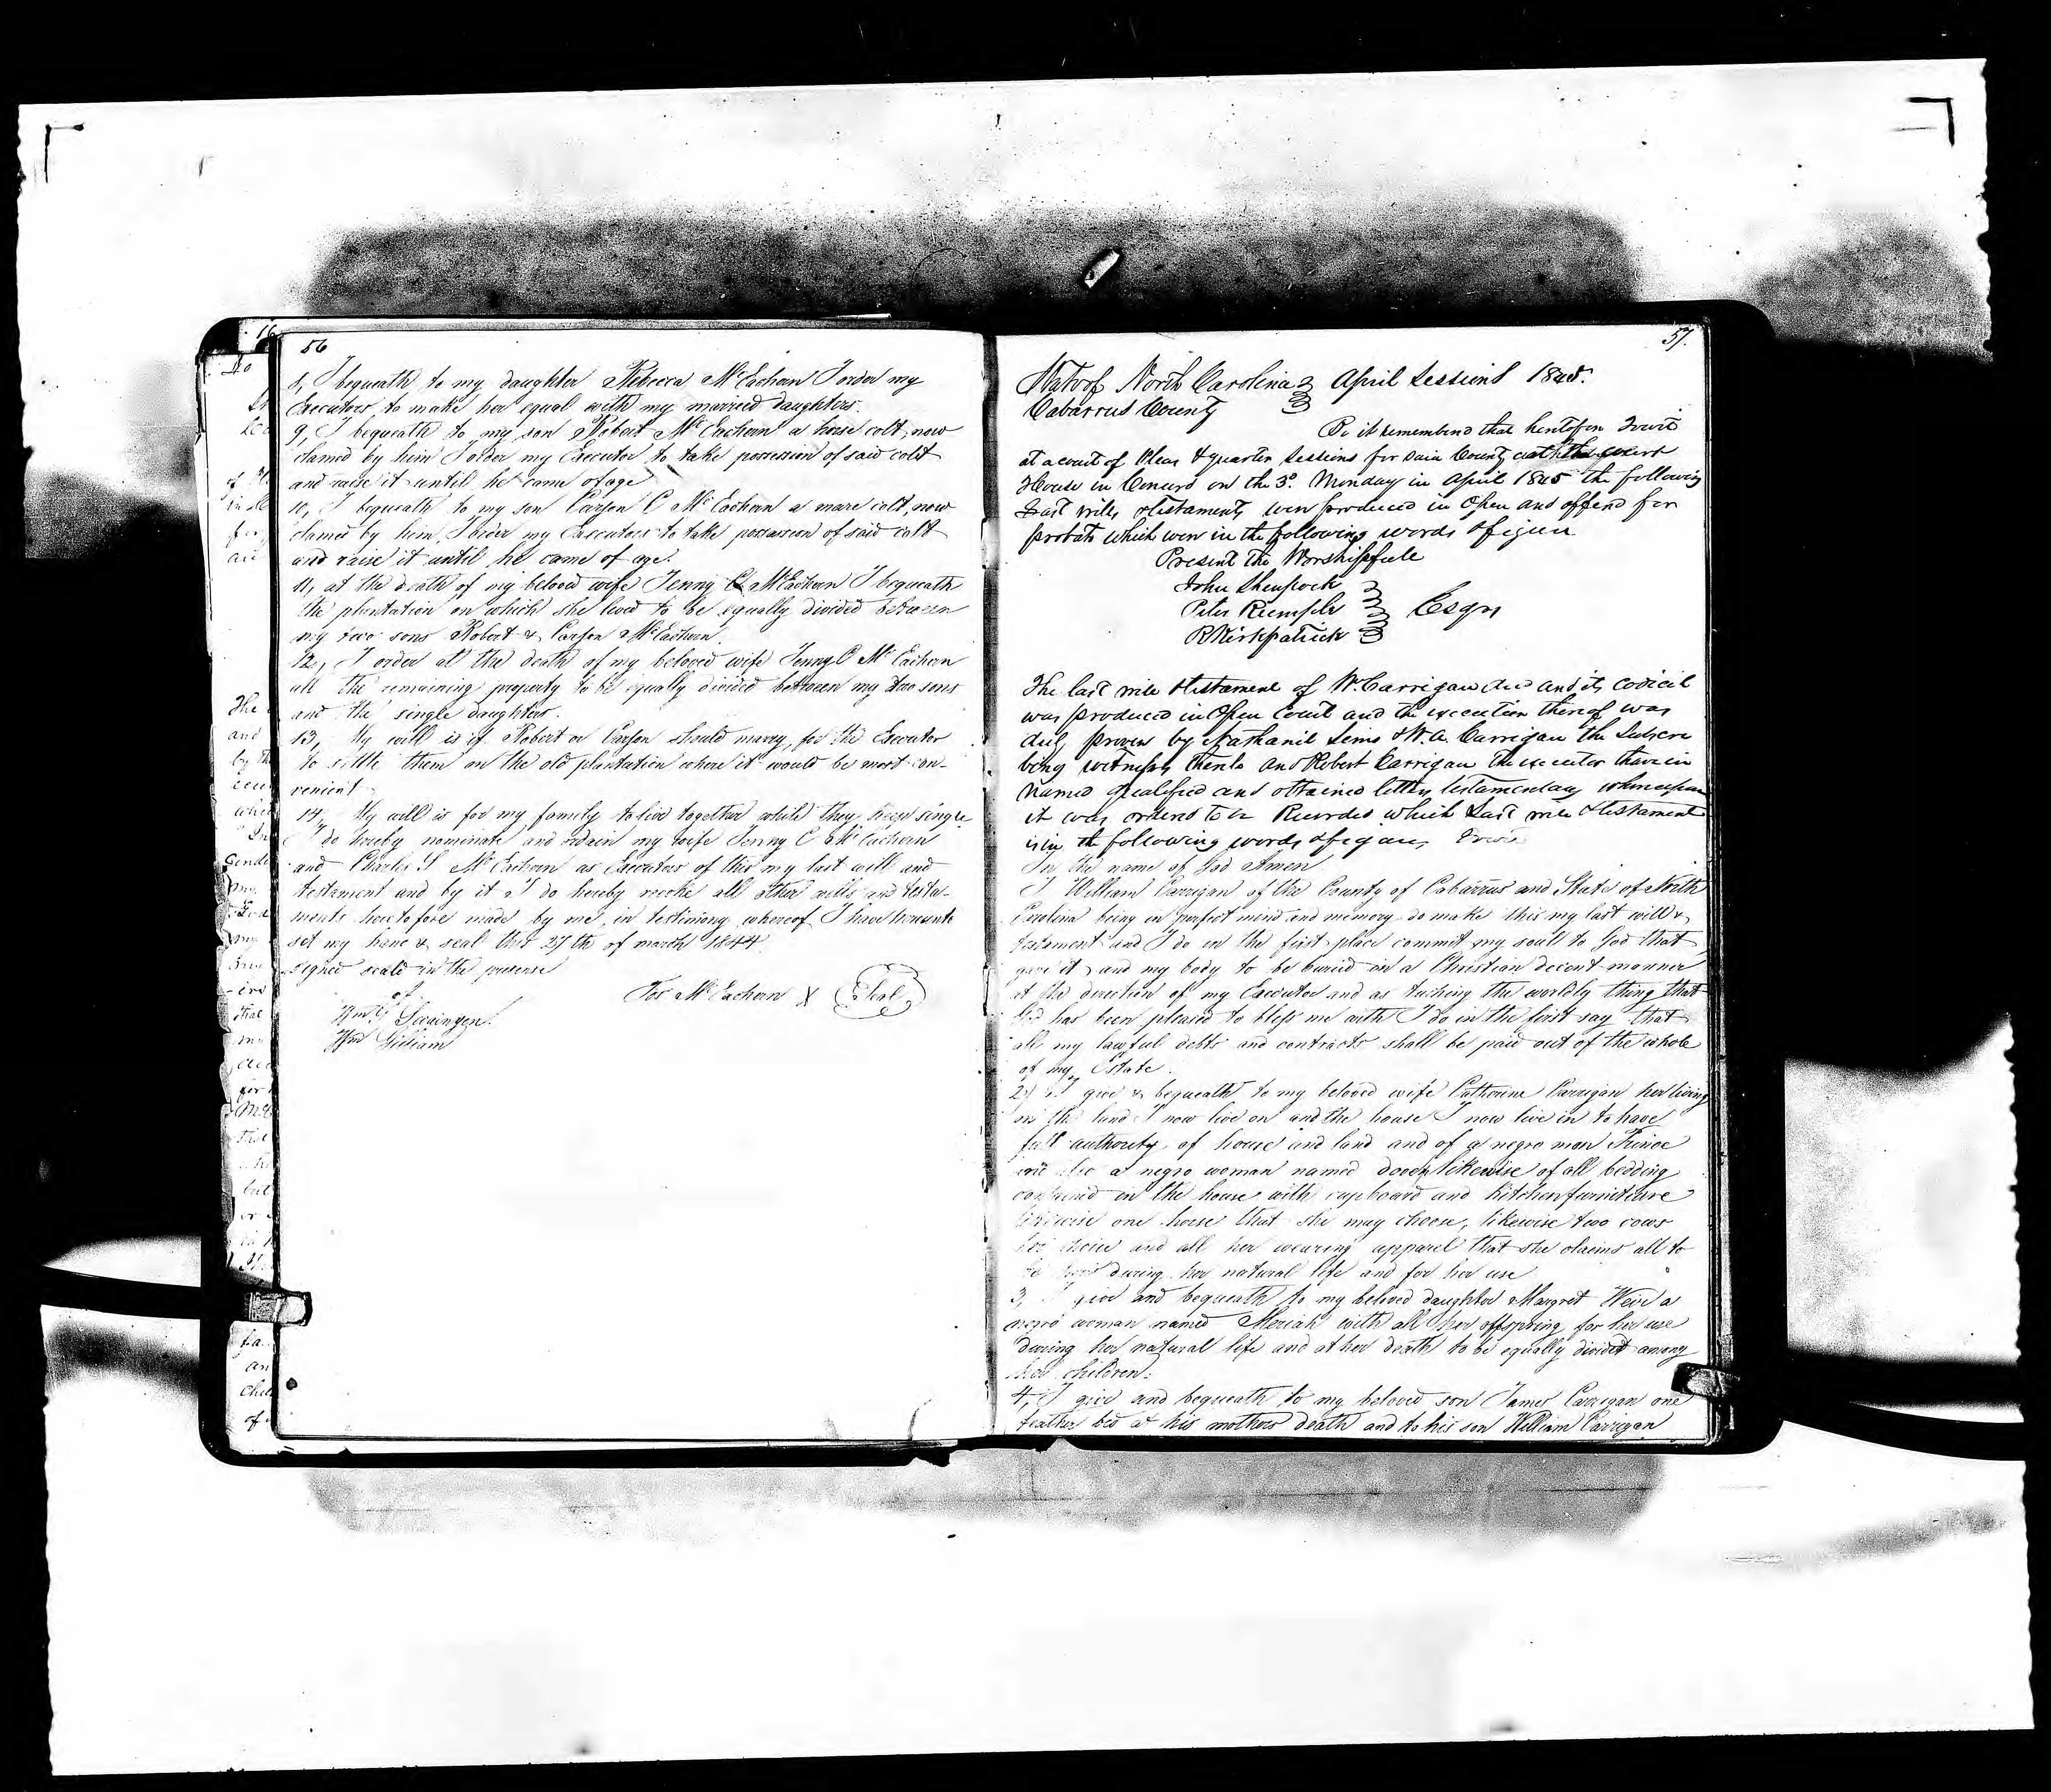 56
8, I bequeath to my daughter Rebecca McEachern I order my
Executors, to make her equal with my married daughters.
9, I bequeath to my son Robert McEachern a horse colt, now
clamed by him I order my Executor to take possession of said colt
and raise it until he came of age
10, I bequeath to my son Carson C McEachern a mare colt, now
clamed by him, I order my Executors to take possession of said colt
and raise it until he came of age.
11, at the death of my beloved wife Jenny C McEachern I bequeath
the plantation on which she lived to be equally divided between
my two sons Robert & Carson McEachern.
12, I order at the death of my beloved wife Jenny C McEachern
all the remaining property to be equally divided between my two sons
and the single daughters.
13, My will is if Robert or Carson should marry, for the Executor
to settle them on the old plantation where it would be most con-
venient
14, My will is for my family to live together while they keep single
I do hereby nominate and ordain my wife Jenny C McEachern
and Charles S McEachern as Executors of this my last will and
testament and by it I do hereby revoke all other wills and testa-
ments heretofore made by me, in testimony whereof I have hereunto
set my hand & seal this 27th of march 1844
signed seald in the presense
of
McEachern X Seal
Wm Gilliam
57.
State of North Carolina April Sessions 1845.
Cabarrus County
Be it remembered that heretofore Towit
at a court of Pleas & quarter Sessions for said County at the court
House in Concord on the 3d. Monday in April 1845 the following
Last wills & testaments were produced in Open and offered for
probate which were in the following words & figures
Present the Worshipfull
John Shenpock
Peter Rumple Esqrs
R Kirkpatrick
The last will & testament of W. Carrigan decd and its codicil
was produced in Open Court and the execution thereof was
duly proven by Nathaniel Sims & W. A. Carrigan the Subscri
bing witnesses thereto and Robert Carrigan the executor therein
named qualified and obtained letters testamentary whereupon
it was ordered to be Recorded which Last will & testament
is in the following words & figures, Towit
In the name of God Amen
I William Carrigan of the County of Cabarrus and State of North
Carolina being in perfect mind and memory do make this my last will &
testament and I do in the first place commit my soull to God that
gave it, and my body to be buried in a Christian decent manner
at the direction of my Executor and as tuching the worldly thing that
God has been pleased to bless me with I do in the first say that
all my lawful debts and contracts shall be paid out of the whole
of my Estate.
2, I give & bequeath to my beloved wife Catherine Carrigan her living
on the land I now live on and the house I now live in to have
full authority of house and land and of a negro man Prince
and also a negro woman named likewise of all bedding
contained in the house with cupboard and kitchen furniture
likewise one horse that she may choose, likewise two cows
her choice and all her wearing apparel that she claims all to
be hers during her natural life and for her use
3, I give and bequeath to my beloved daughter Margret Weir a
negro woman named Meriah with all her offspring for her use
during her natural life and at her death to be equally divided among
her children.
4, I give and bequeath to my beloved son James Carrigan one
feather bed at his mothers death and to his son William Carrigan